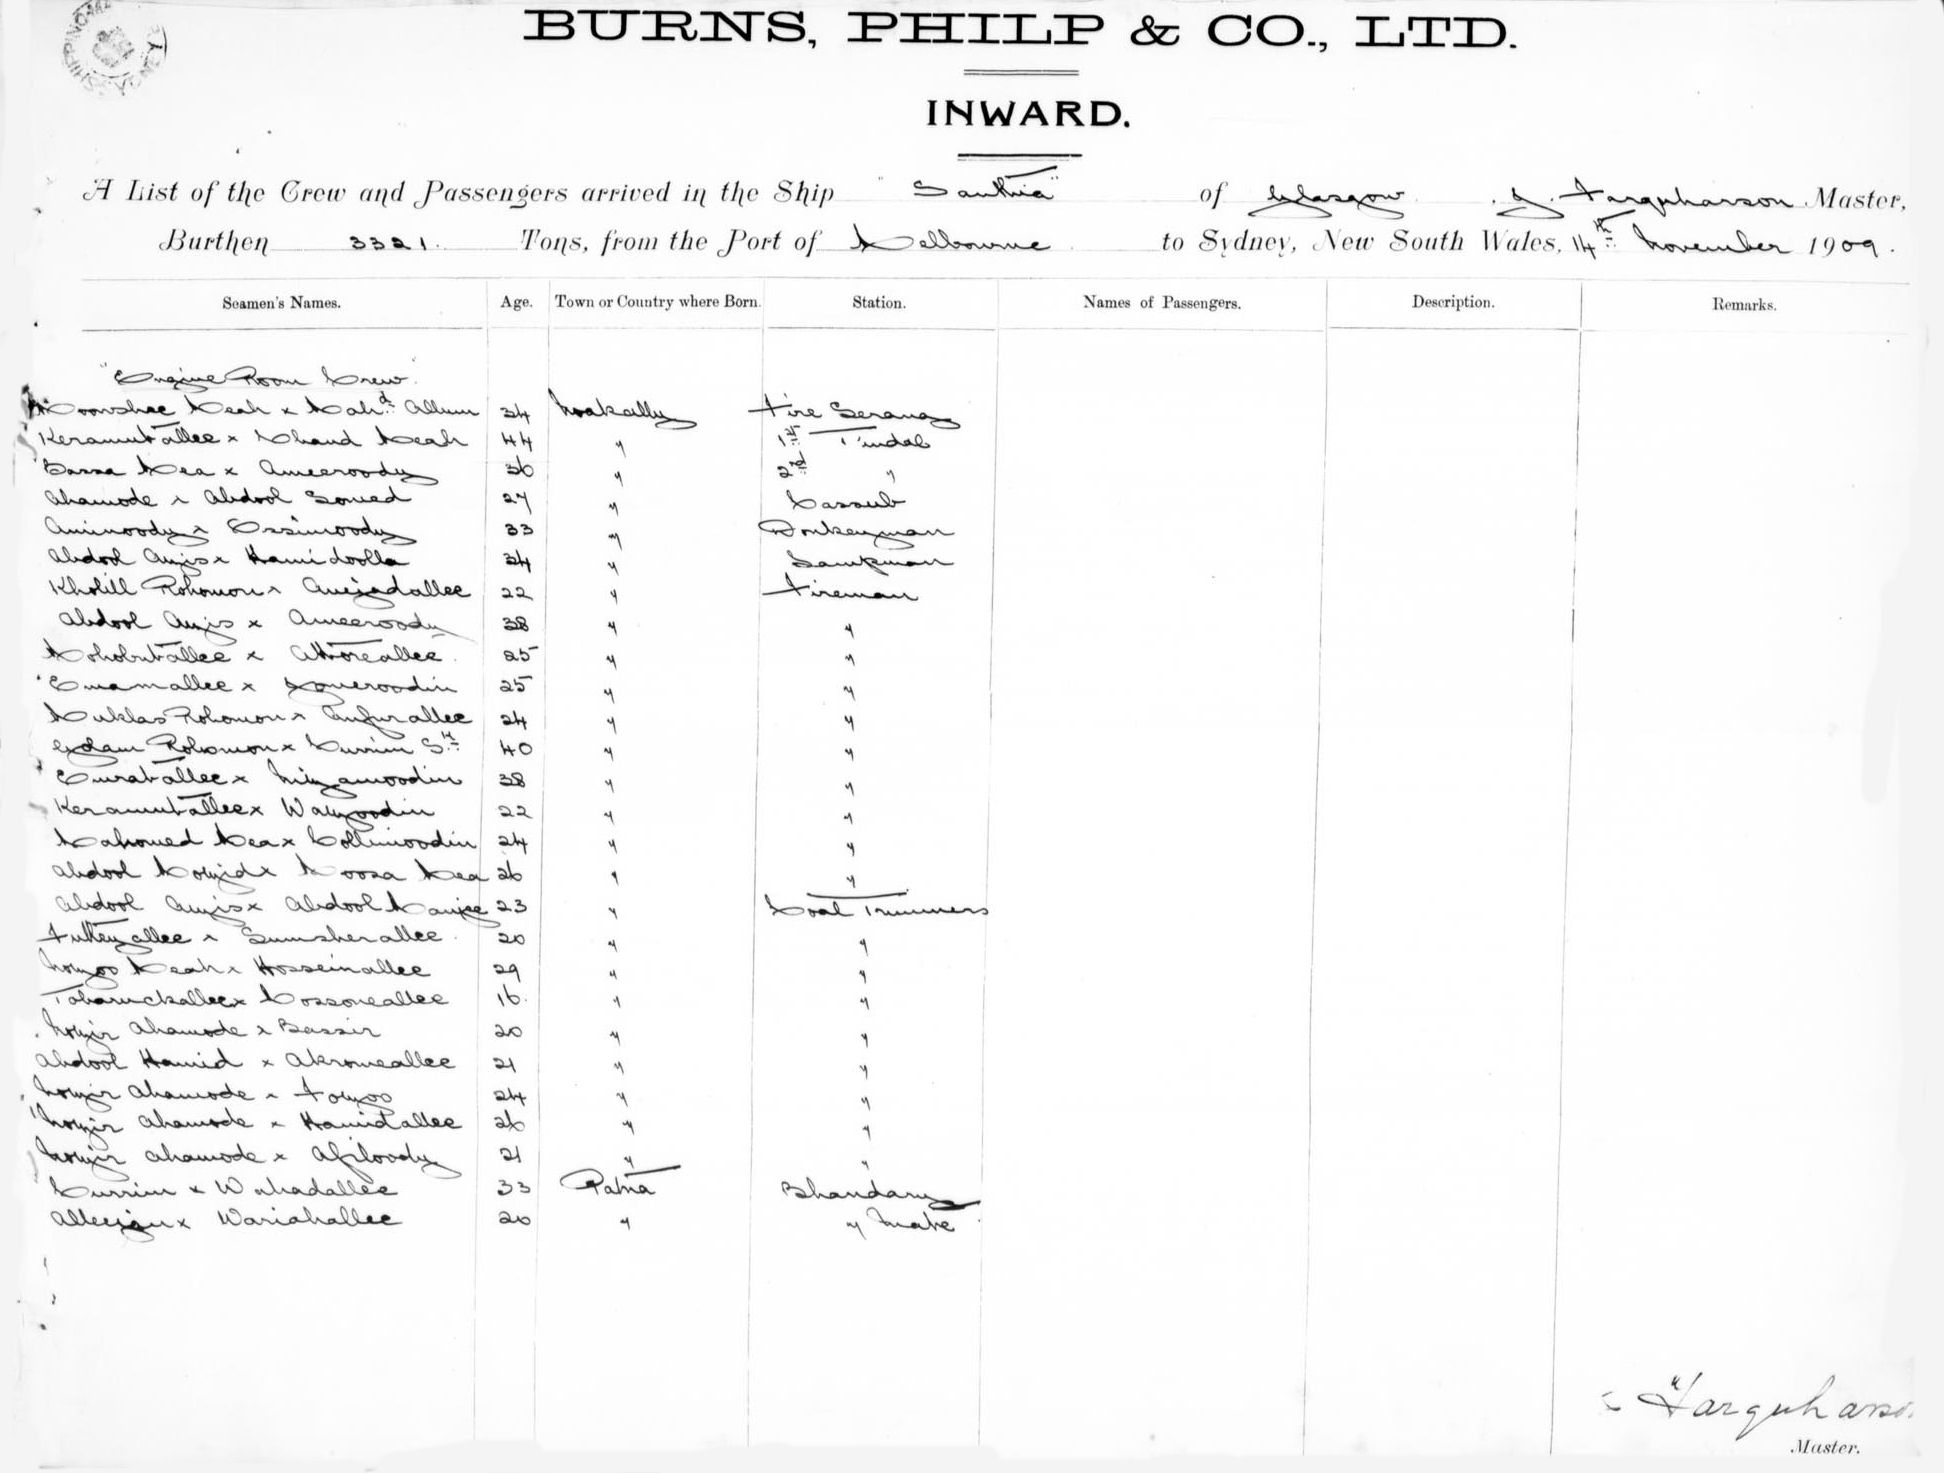 BURNS, PHILP & CO., LTD.
INWARD.
A List of the Crew and Passengers arrived in the Ship "Santhia" of Glasgow. J. Farquharson Master,
Burthen 3321 Tons, from the Port of Melbourne to Sydney, New South Wales, 14th November 1909.
Seamen's Names. Age. Town or Country where Born. Station. Names of Passengers. Description. Remarks.
"Engine Room Crew"
Moonshee Meah x Mahd. Allum 34 Noakally Fire Serang
Keramut Allee x Chand Meah 44 " 1st Tindal
Bassa Mea x Ameeroody 36 " 2nd "
Ahamode x Abdool Somed 27 " Cassub
Aminoody x Essimoody 33 " Donkeyman
Abdool Anjis x Hamidoolla 34 " Lampman
Kholill Rohomon x Amejadallee 22 " Fireman
Abdool Anjis x Ameeroody 38 " "
Mohobut allee x Attoreallee 25 " "
Emamallee x 25 " "
Muklas Rohomon x allee 24 " "
Golam Rohomon x Currim Sk. 40 " "
Allee x 38 " "
Keramut allee x 22 " "
Mahomed Mea x Collimoodin 24 " "
Abdool Moujid x Moosa Mea 26 " "
Abdool Anjis x Abdool 23 " Coal Trimmers
Futtey allee x Sumsherallee 20 " "
Meah x Hosseinallee 29 " "
Toharuckallee x Cossoneallee 16 " "
Ahamode x Bassir 20 " "
Abdool Hamid x Akromeallee 21 " "
Ahamode x 24 " "
Ahamode x Hamidallee 26 " "
Ahamode x Afiloody 21 " "
Currim x Wahadallee 33 Patna Bhandary
x Wariahallee 20 " " Mate
Farquharson
Master.